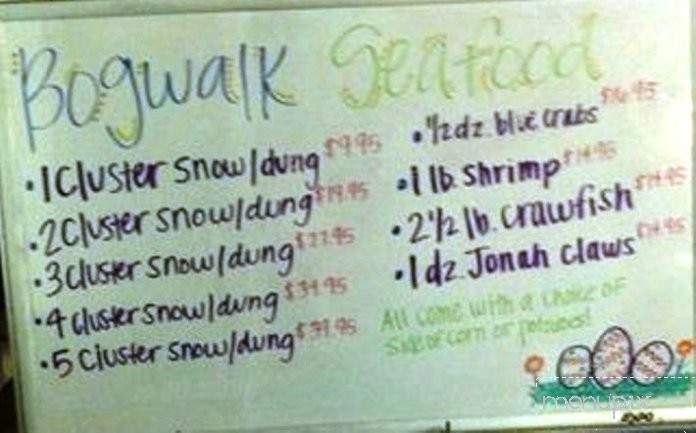 Bogwalk Seafood
•1 Cluster Snow/dung $9.95
•2 Cluster Snow/dung $19.95
•3 Cluster Snow/dung $27.95
•4 Cluster Snow/dung $34.95
•5 Cluster Snow/dung $39.95
•1/2 dz. blue crabs $16.95
•1 lb. Shrimp $14.95
•2 1/2 lb. Crawfish $14.95
•1 dz. Jonah Claws $14.95
All come with a choice of
side or corn or potatoes!
menupix